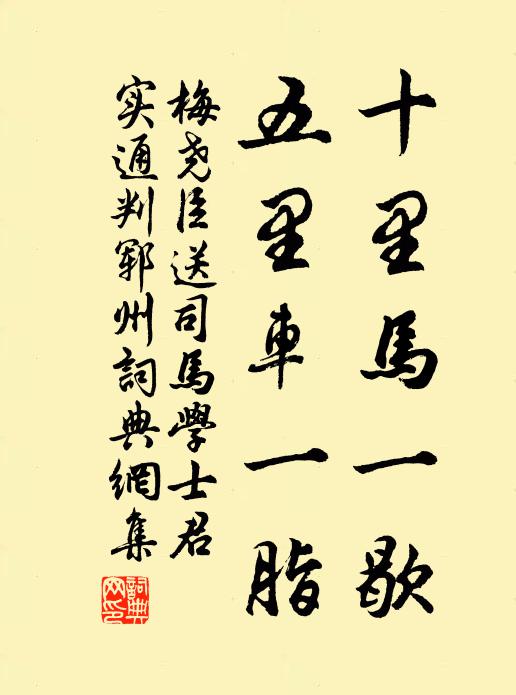 十里馬一歇
五里車一脂
梅尧臣送司馬學士君
实通判郓州詞典網集
詞典
网印